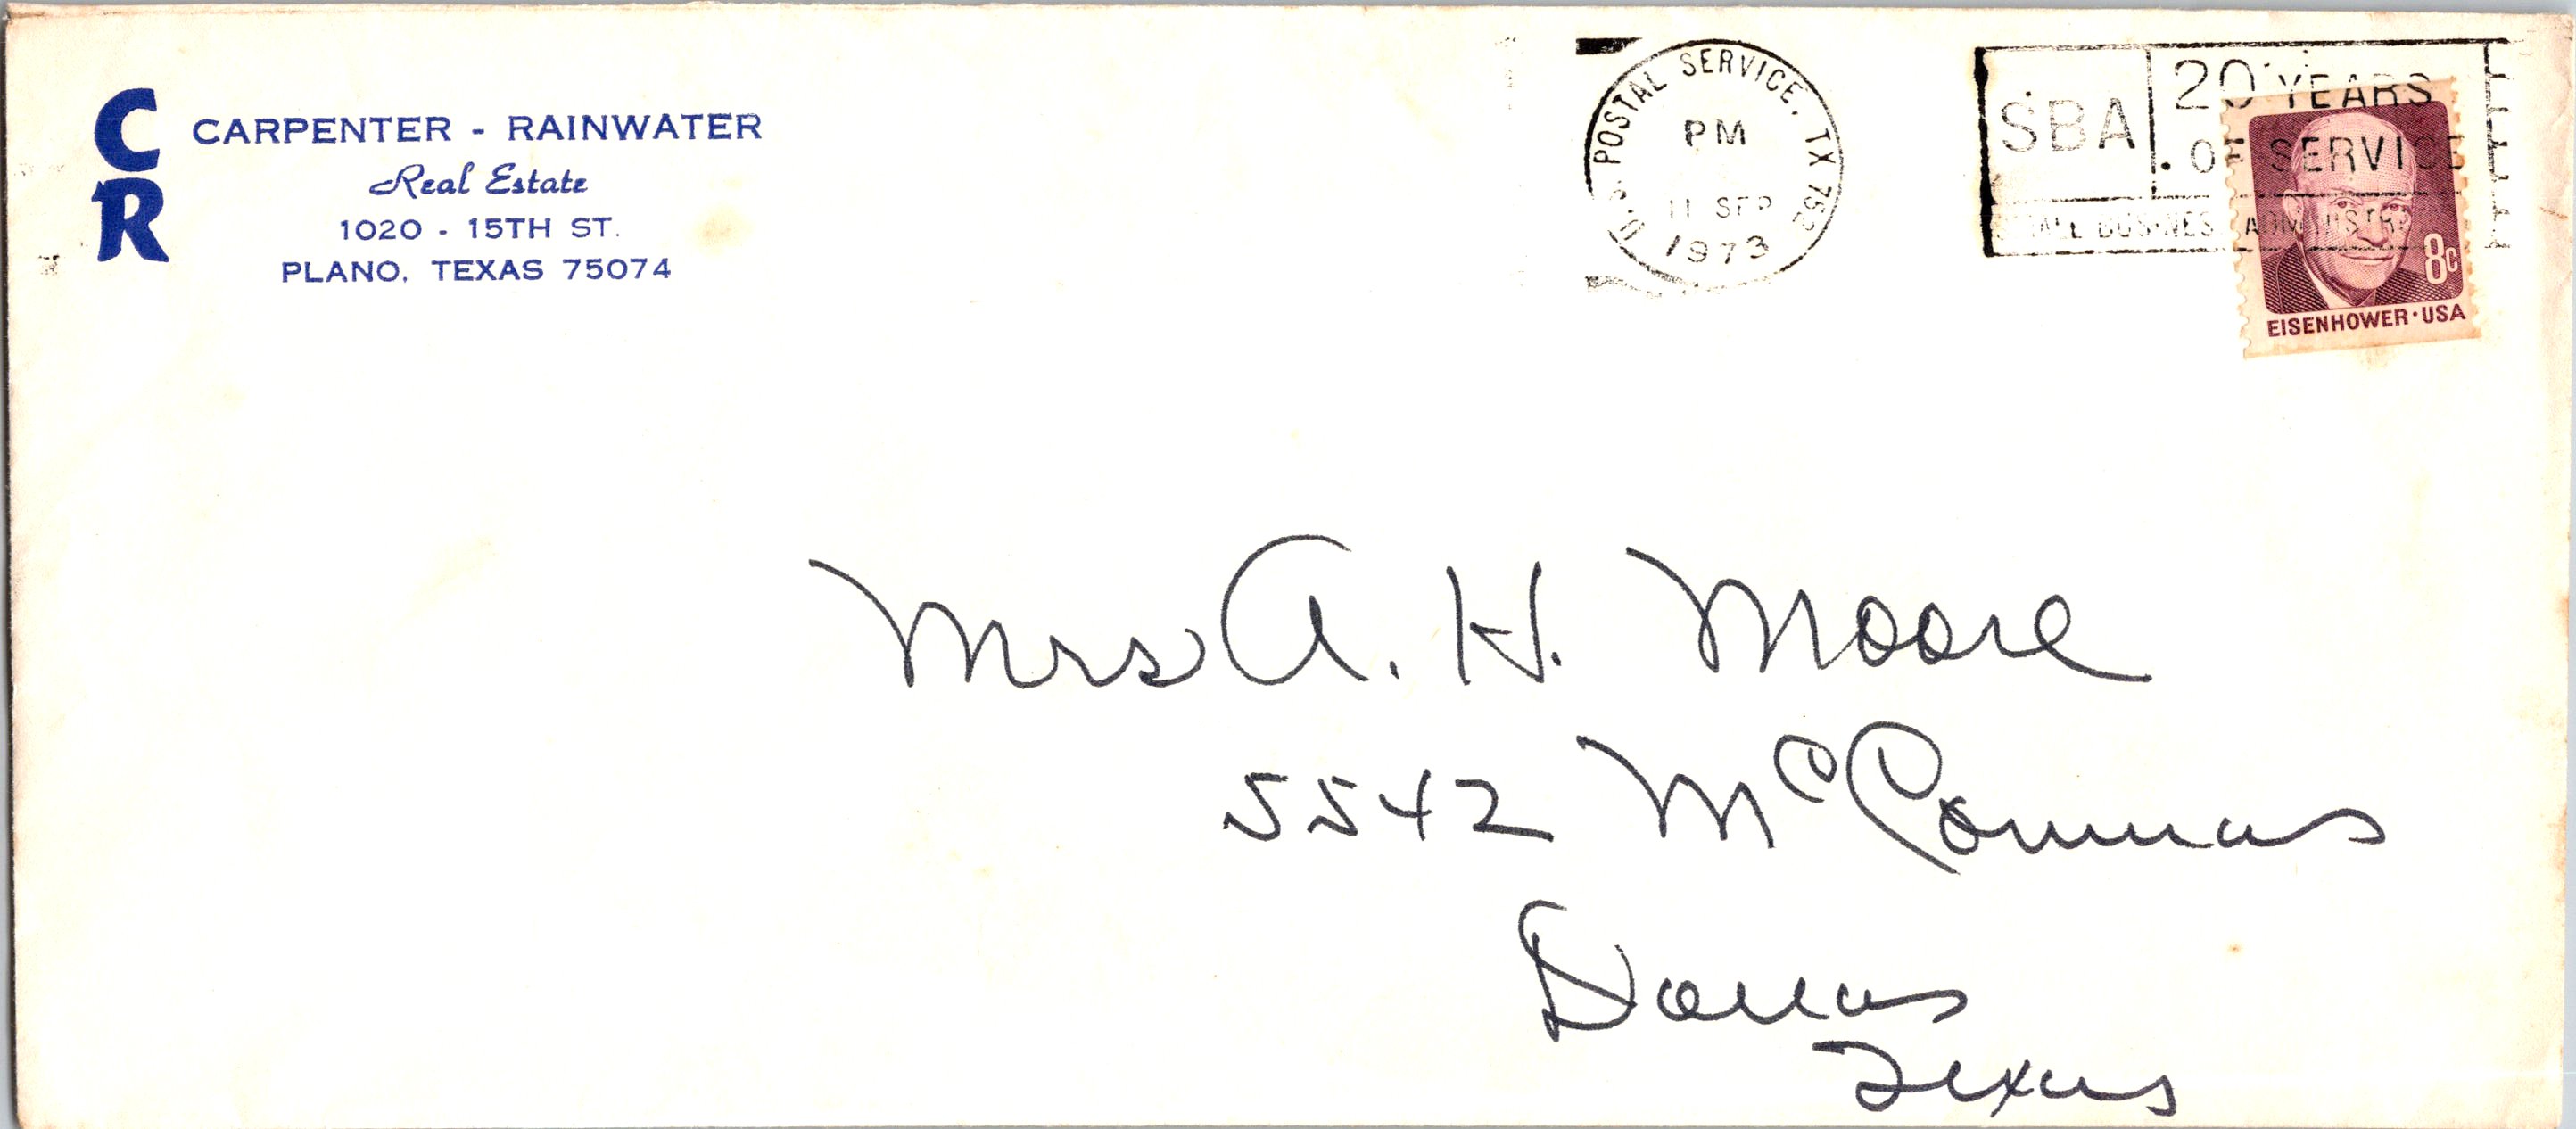 CR
CARPENTER - RAINWATER
Real Estate
1020 - 15TH ST.
PLANO, TEXAS 75074
U.S. POSTAL SERVICE, TX 752
PM
11 SEP
1973
SBA
20 YEARS
OF SERVICE
SMALL BUSINESS ADMINISTRATION
8c
EISENHOWER · USA
Mrs A. H. Moore
5542 McCommas
Dallas
Texas